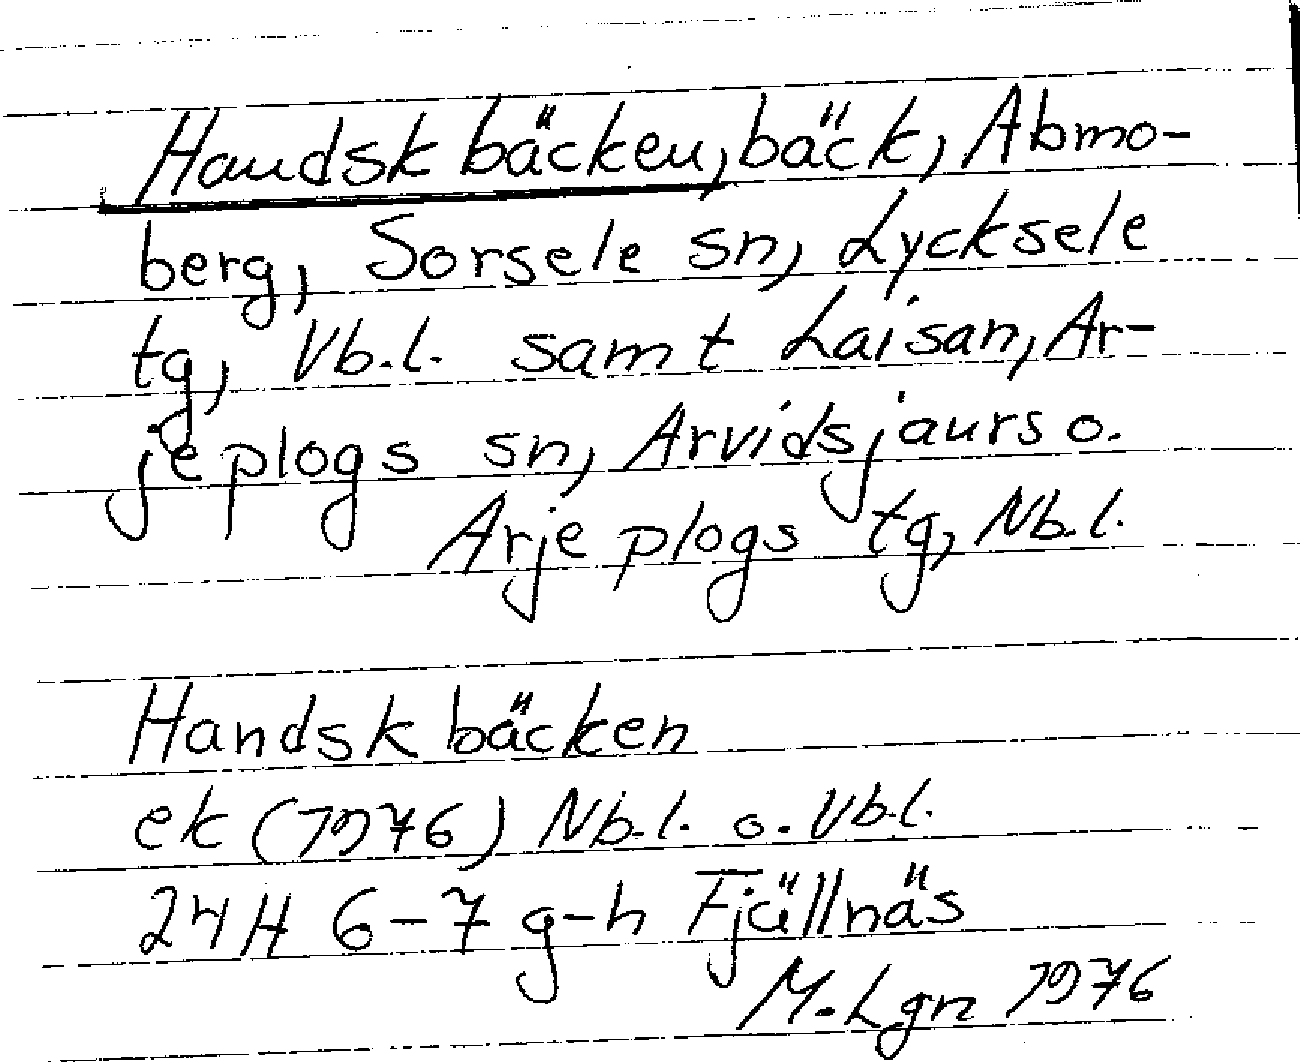 Handskbäcken, bäck, Abmo-
berg, Sorsele sn, Lycksele
tg, Vb.l. samt Laisan, Ar-
jeplogs sn, Arvidsjaurs o.
Arjeplogs tg, Nb.l.
Handskbäcken
ek (1976) Nb.l. o. Vb.l.
24H 6-7 g-h Fjällnäs
M. Lgn 1976